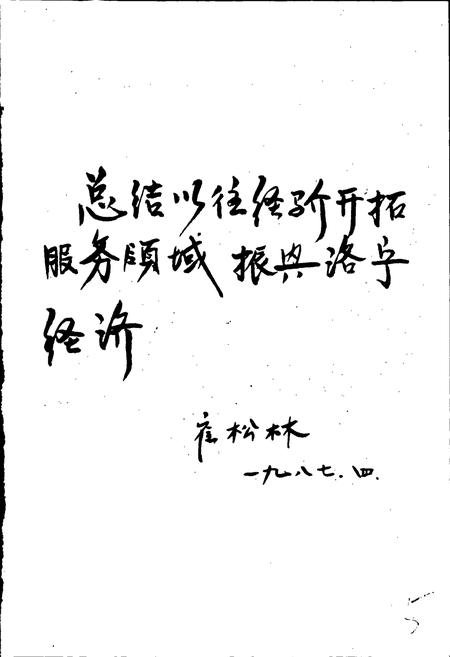 总结以往经验开拓
服务领域 振兴洛宁
经济
崔松林
一九八七.四.